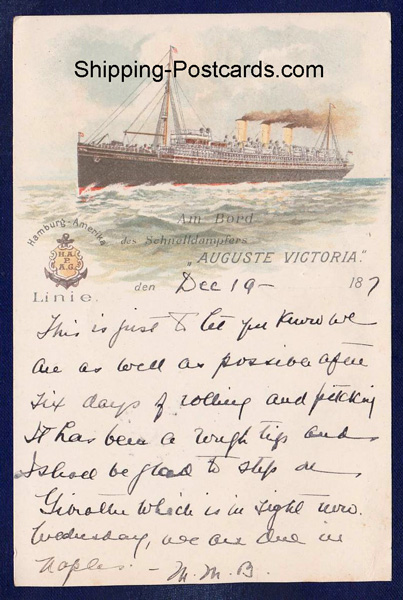 Shipping-Postcards.com
Am Bord
des Schnelldampfers
„AUGUSTE VICTORIA."
Hamburg-Amerika
H.A.
P.
A.G.
Linie.
den Dec 19 - 187
This is just to let you know we
are as well as possible after
six days of rolling and pitching
It has been a rough trip and
I shall be glad to step on
Gibraltar which is in sight now.
Wednesday, we are due in
Naples. - M. M. B.